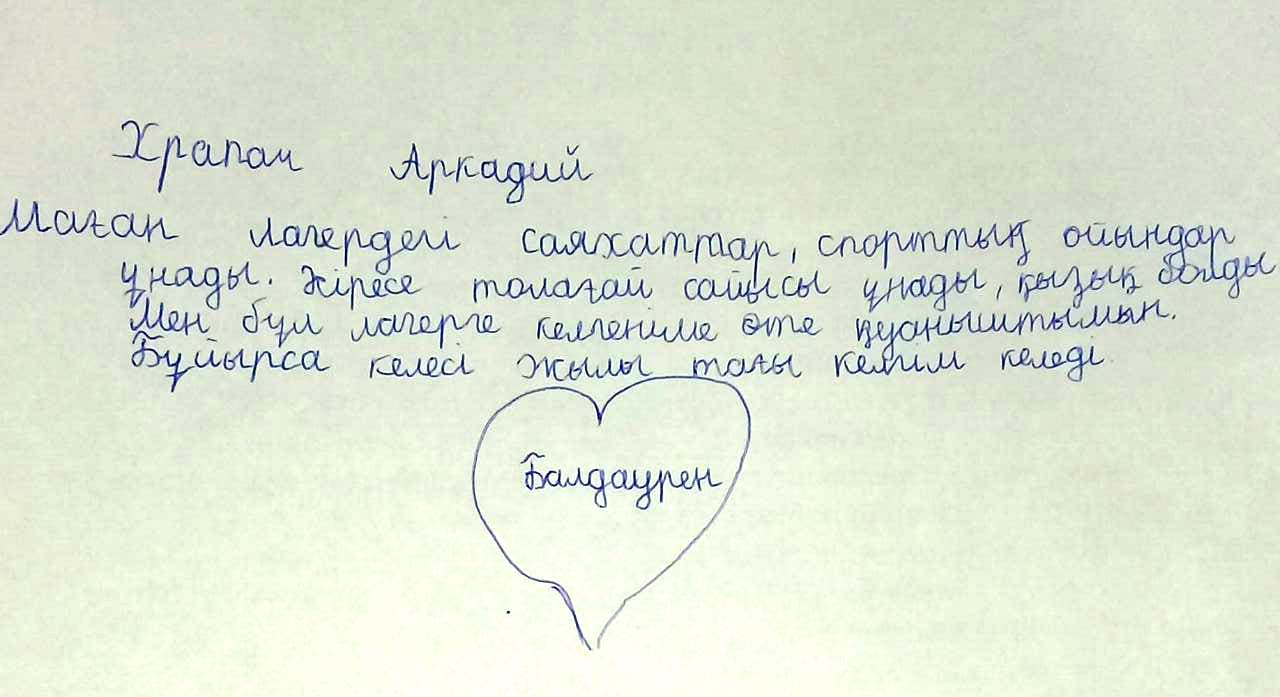 Храпач Аркадий
Маған лагердегі саяхаттар, спорттық ойындар
ұнады. Әіресе толағай сайысы ұнады, қызық болды
Мен бұл лагерге келгеніме өте қуаныштымын.
Бұйырса келесі жылы тағы келгім келеді.
Балдаурен